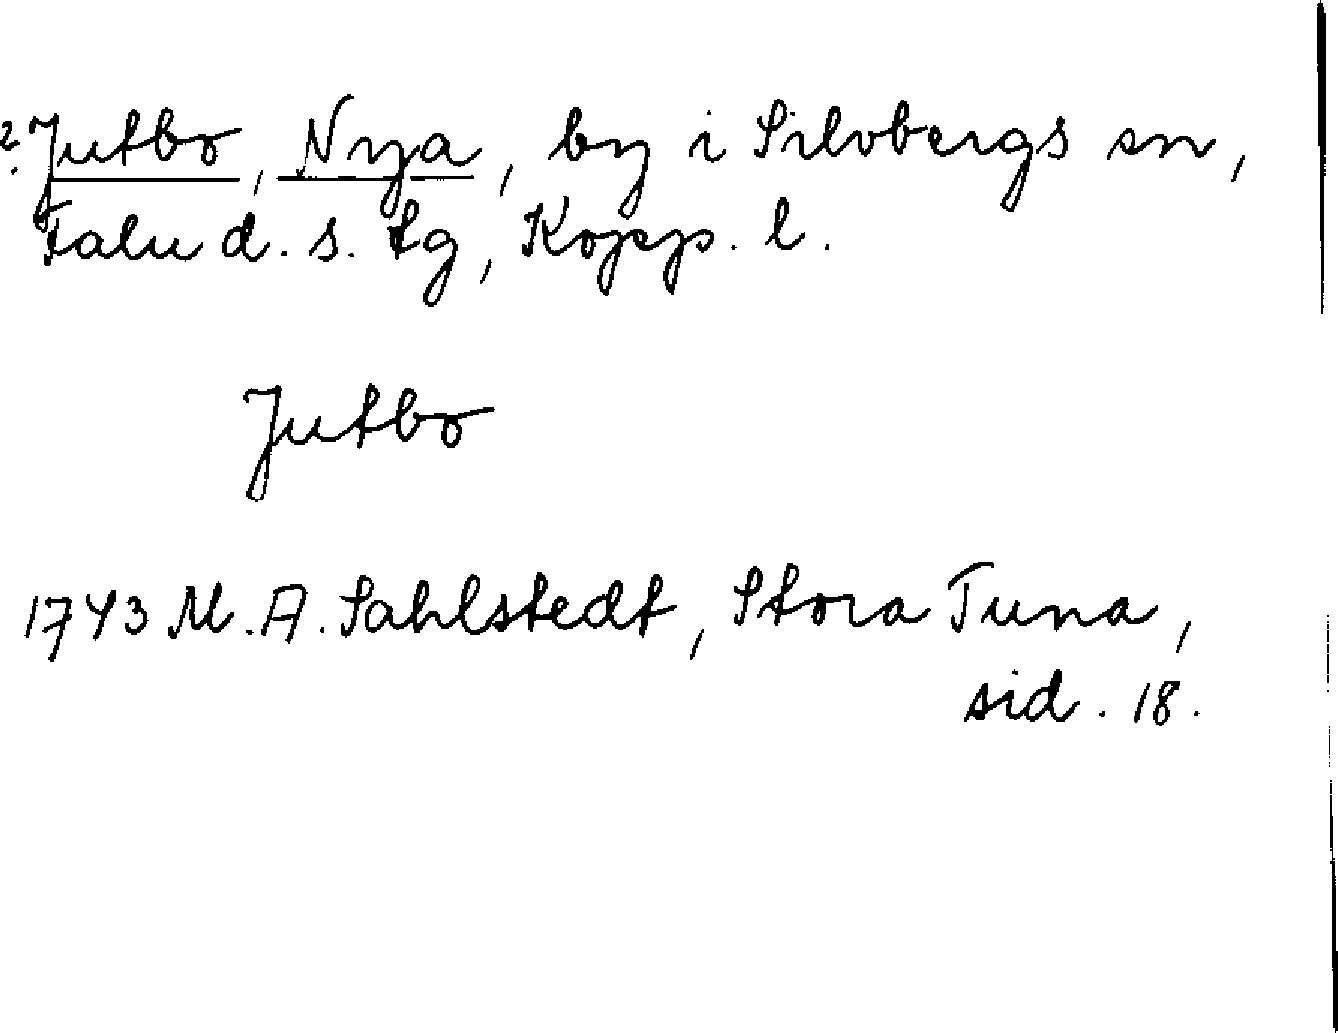 ? Jutbo, Nya, by i Silvbergs sn,
Falu d. s. tg, Kopp. l.
Jutbo
1743 M. A. Sahlstedt, Stora Tuna,
sid. 18.